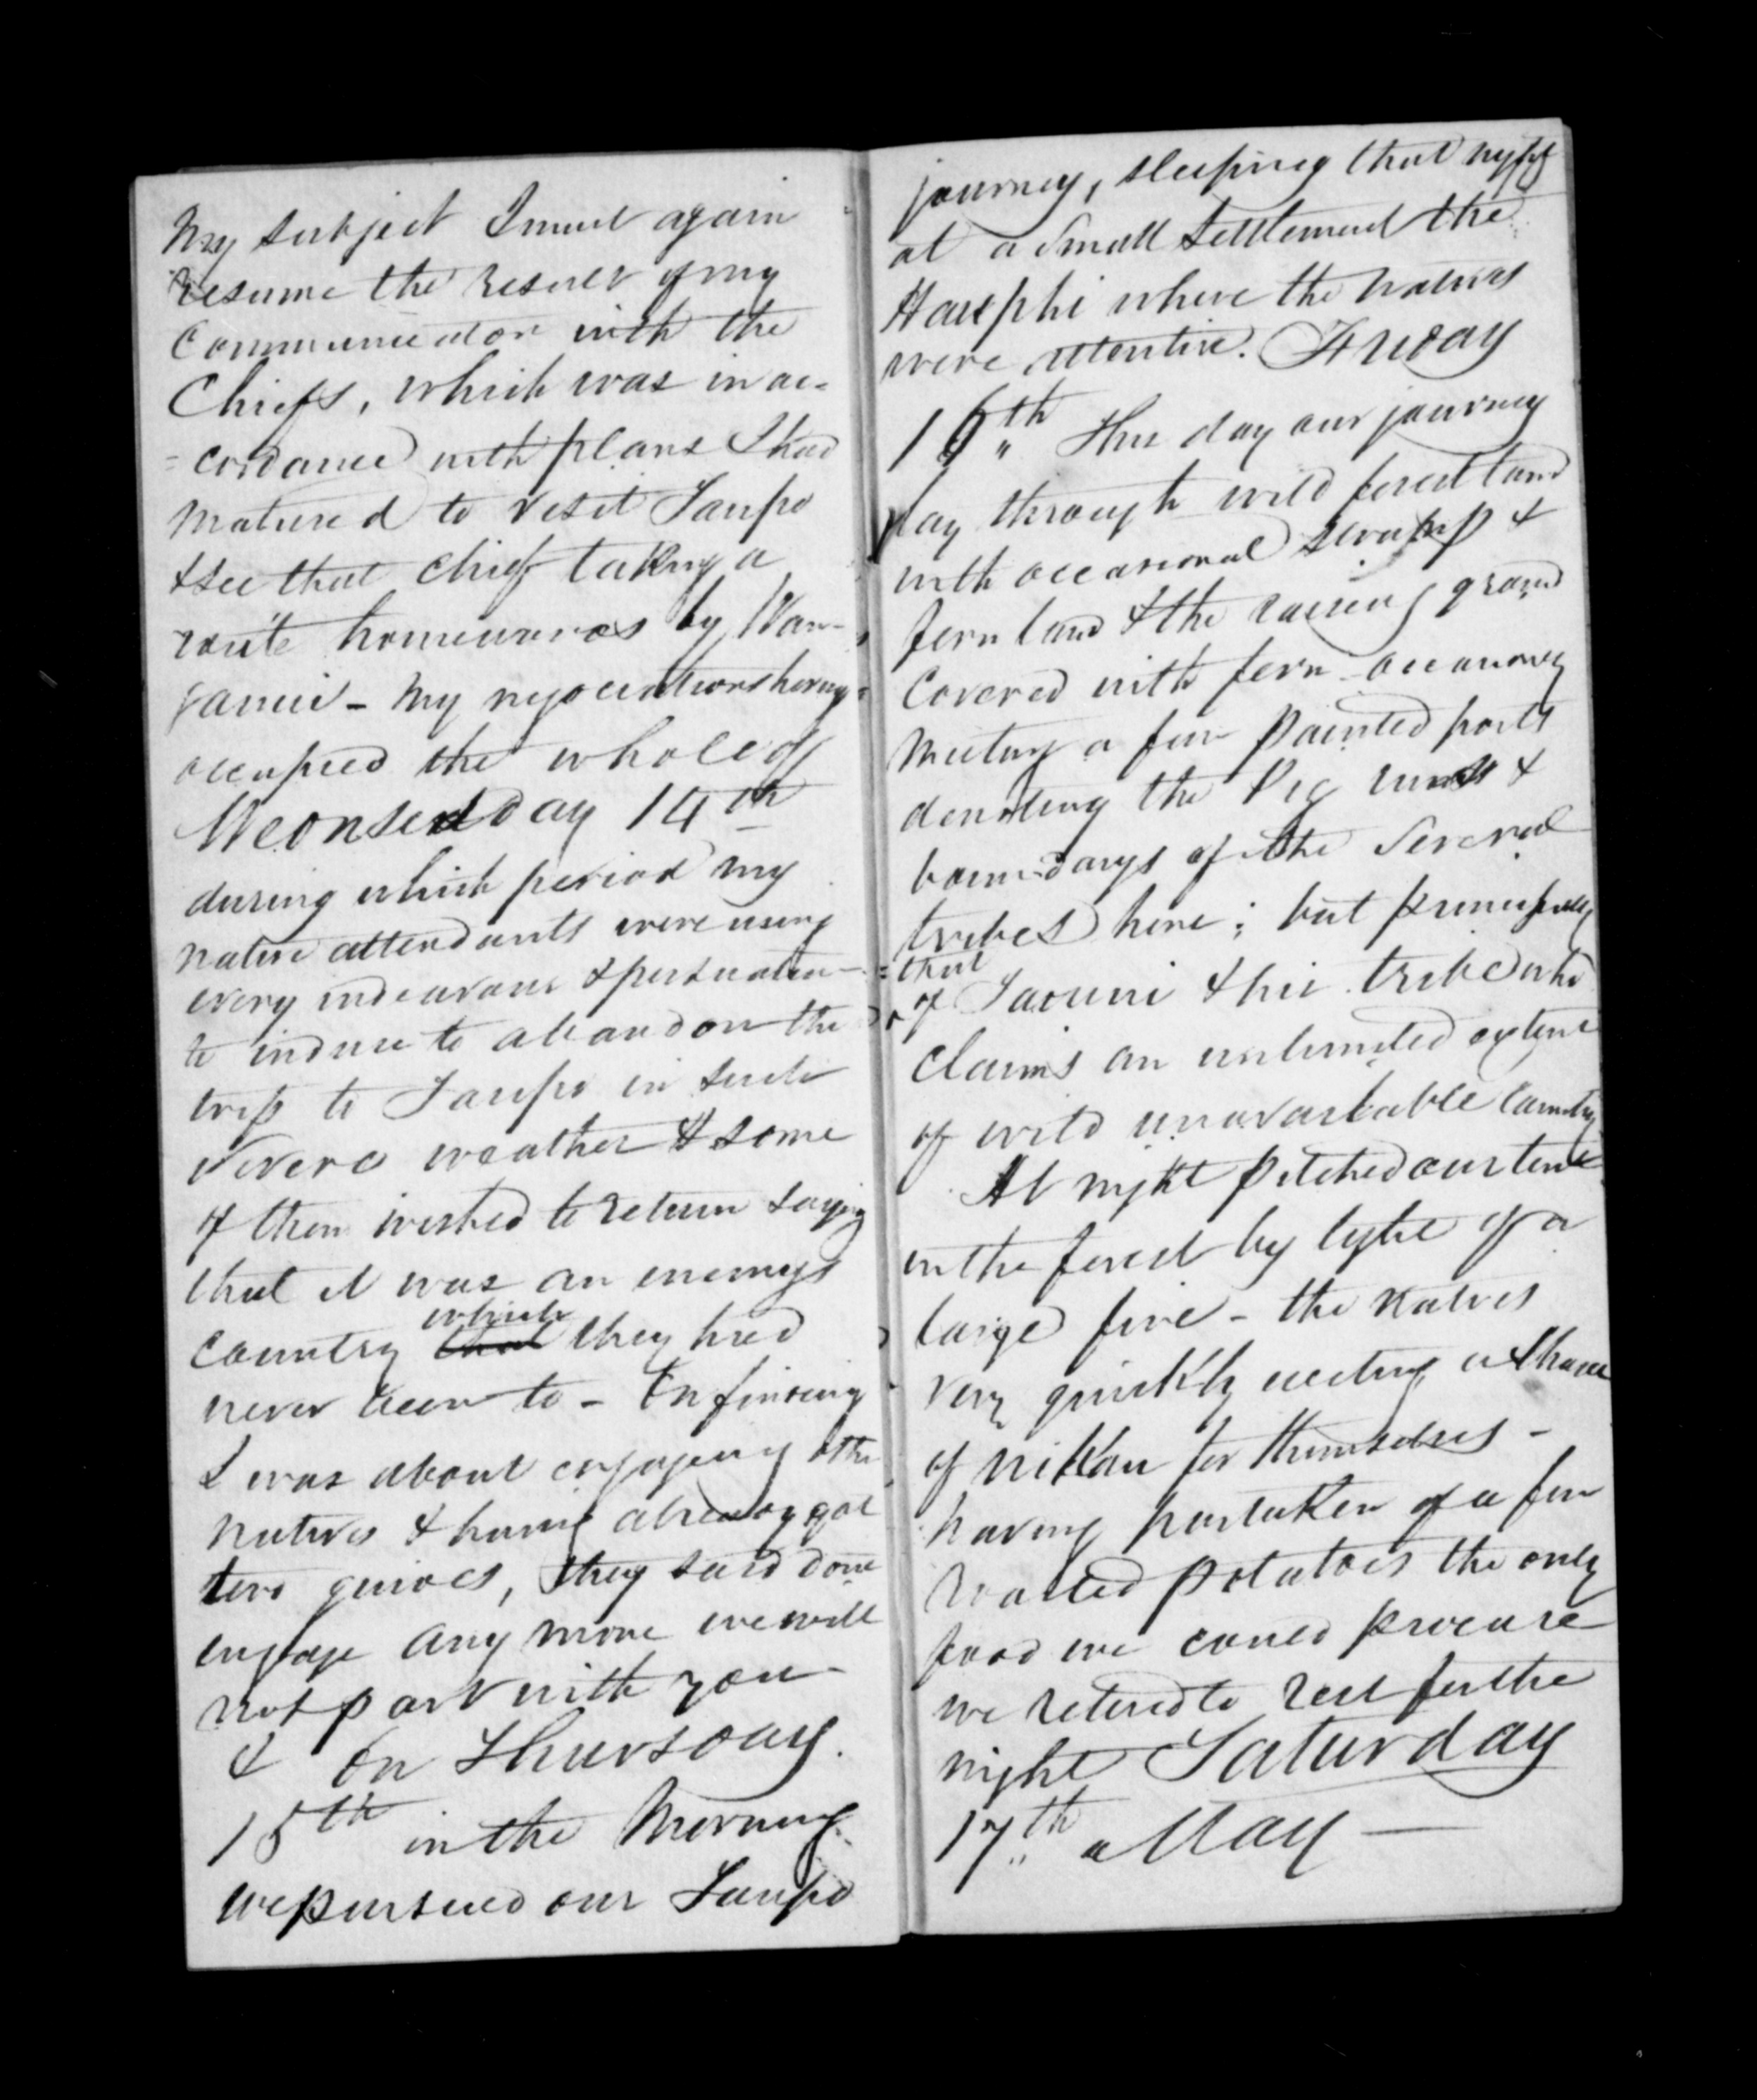 My subject I must again
resume the result of my
Communication with the
Chiefs, which was in ac-
=cordance with plans I had
matured to visit Taupo
& see that chief taking a
route homewards by Wan-
ganui - My negociations having
occupied the whole of
Wednesday 14th
during which period my
native attendants were using
every indeavour & persuation
to induce to abandon the
trip to Taupo in such
severe weather & some
of them wished to return saying
that it was an enemys
country which they had
never been to - On finding
I was about engaging other
natives & having already got
two guides, they said dont
engage any more we will
not part with you
& On Thursday
15th in the Morning
we pursued our Taupo
journey, sleeping that night
at a small settlement the
where the natives
were attentive. Friday
16th This day our journey
lay through wild forest land
with occasional swamp &
fern land & the raising ground
covered with fern - occasionaly
meeting a few painted posts
denoting the Pig runs &
boundarys of the several
tribes here; but principally
that
of Taonui & his tribe who
claims an unlimited extent
of wild unavailable Country
At night pitched our tent
in the forest by light of a
large fire - the natives
very quickly erecting a share
of nikau for themselves -
having partaken of a few
roasted potatoes the only
food we could procure
we retired to rest for the
night Saturday
17th May —